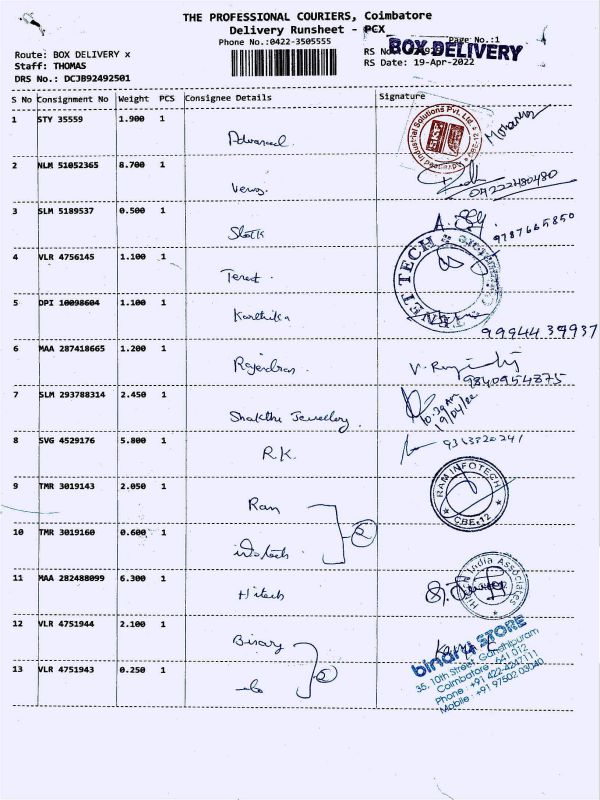 THE PROFESSIONAL COURIERS, Coimbatore
Delivery Runsheet - PCX
Phone No.:0422-3505555
Page No.:1
BOX DELIVERY
Route: BOX DELIVERY x
RS No
Staff: THOMAS
RS Date: 19-Apr-2022
DRS No.: DCJB92492501
S No Consignment No Weight PCS Consignee Details Signature
1 STY 35559 1.900 1
Advanced
Industrial Solutions Pvt. Ltd.
Mohankumar
2 NLM 51052365 8.700 1
Venus
04222480480
3 SLM 5189537 0.500 1
9787665850
4 VLR 4756145 1.100 1
TENET TECH
5 DPI 10098604 1.100 1
Karthika
9994439937
6 MAA 287418665 1.200 1
Rajendran
9840954875
7 SLM 293788314 2.450 1
Shakthi Jewellery
10.39 AM
19/04/22
8 SVG 4529176 5.800 1
R.K.
9363220241
9 TMR 3019143 2.050 1
Ram
RAM INFOTECH
CBE-12
10 TMR 3019160 0.600 1
infotech
2
11 MAA 282488099 6.300 1
Hitech
India Associates
12 VLR 4751944 2.100 1
Binary
binary STORE
35, 10th Street, Gandhipuram
Coimbatore - 641 012
Phone : +91 422-4247111
Mobile : +91 97502 03040
13 VLR 4751943 0.250 1